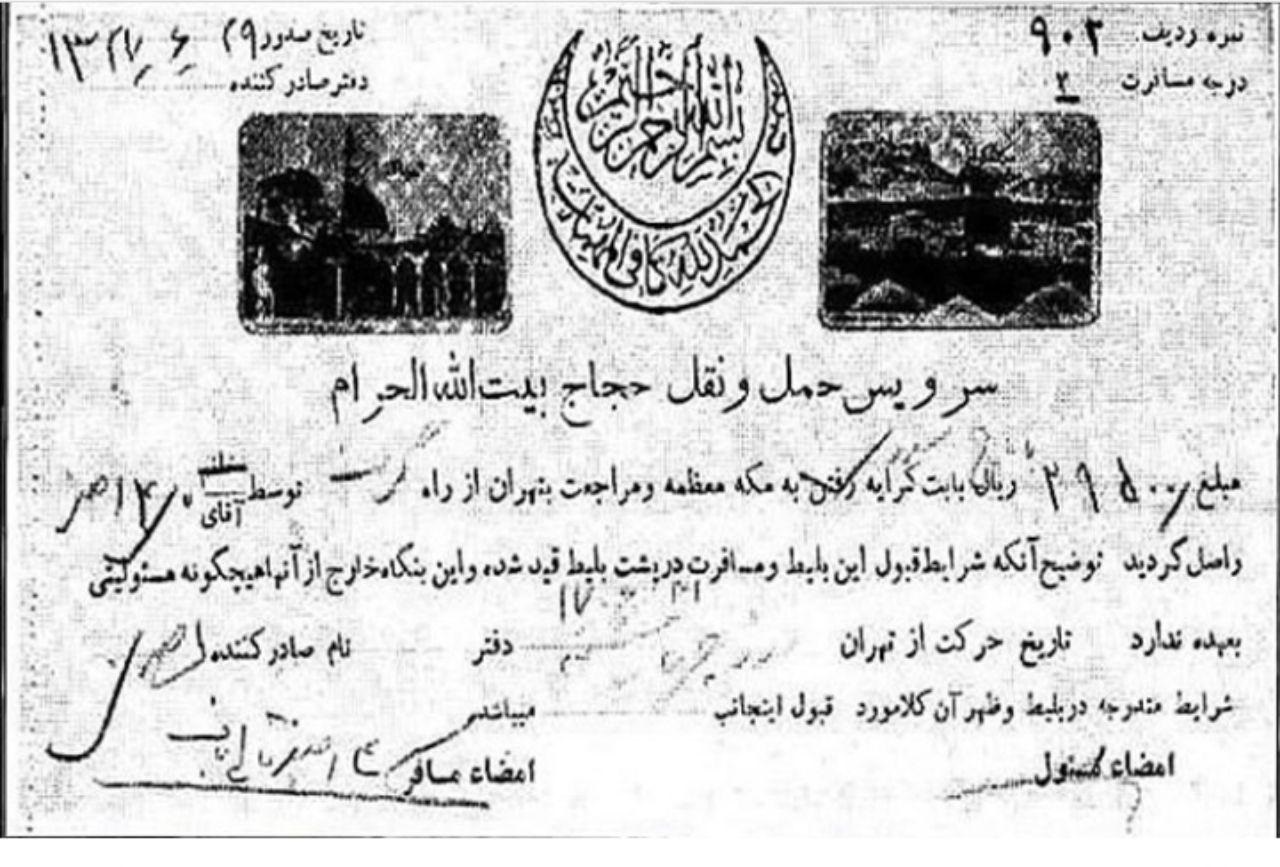 نمره ردیف ۹۰۲
تاریخ صدور ۲۹ ر ۶ ر ۱۳۲۷
درجه مسافرت ۲
دفتر صادر کننده
بسم الله الرحمن الرحیم
الحمدلله کافی المهمات
سرویس حمل و نقل حجاج بیت‌الله الحرام
مبلغ ۲۹۵۰۰ ریال بابت کرایه رفتن به مکه معظمه و مراجعت بتهران از راه توسط خانم آقای
واصل گردید توضیح آنکه شرایط قبول این بلیط و مسافرت در پشت بلیط قید شده و این بنگاه خارج از آنها هیچگونه مسئولیتی
بعهده ندارد تاریخ حرکت از تهران دفتر نام صادر کننده
شرایط مندرجه در بلیط و ظهر آن کلا مورد قبول اینجانب میباشد
امضاء مسئول امضاء مسافر